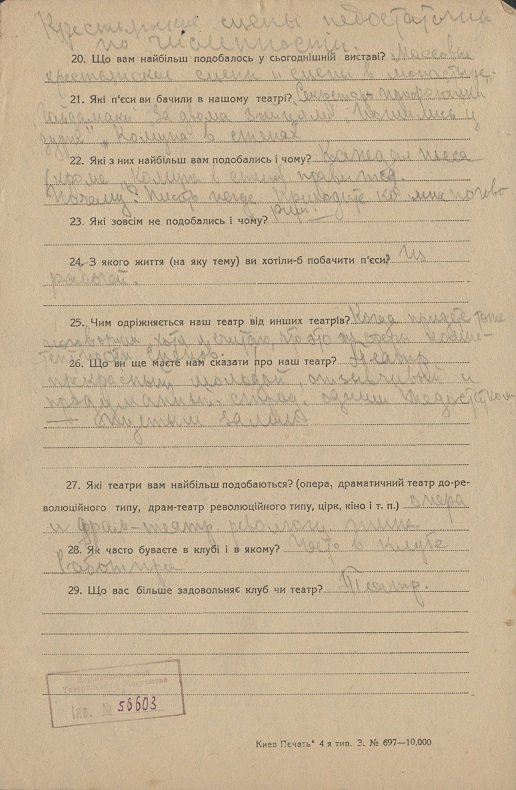 Крестьянские сцены недостаточны
по численности.
20. Що вам найбільш подобалось у сьогоднішній виставі? Массовые
крестьянские сцены и сцены в монастыре
21. Які п'єси ви бачили в нашому театрі? Секретарь профспілки
Гайдамаки За двома зайцями, Пошились у
дурні" „Комуна в степах
22. Які з них найбільш вам подобались і чому? Каждая пьеса
кроме „Комуна в степах"
Почему? Приходите ко мне погово
рим.
23. Які зовсім не подобались і чому?
24. З якого життя (на яку тему) ви хотіли-б побачити п'єси? Из
рабочей.
25. Чим одріжняється наш театр від инших театрів? Когда придёте тоже
поговорим, хотя я считаю, что это
26. Що ви ще маєте нам сказати про наш театр? Театр
прекрасный молодой, отзывчивый и
одним недостатком
— пустым залом
27. Які театри вам найбільш подобаються? (опера, драматичний театр до-ре-
волюційного типу, драм-театр революційного типу, цірк, кіно і т. п.) опера
и драм-театр революц. типа
28. Як часто буваєте в клубі і в якому? Часто в клубе
29. Що вас більше задовольняє клуб чи театр? Театр.
Інв. № 56603
Киев Печать" 4 я тип. З. № 697—10.000